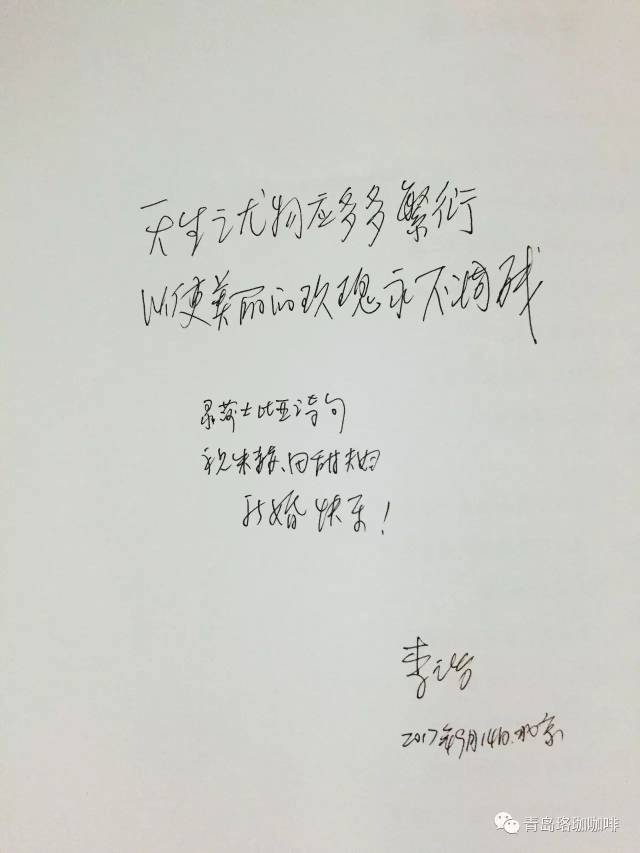 天生之尤物应多多繁衍
以使美丽的玫瑰永不凋残
录莎士比亚诗句
祝朱 、田甜夫妇
新婚快乐！
李
2017年9月14日.北京
青岛珞珈咖啡